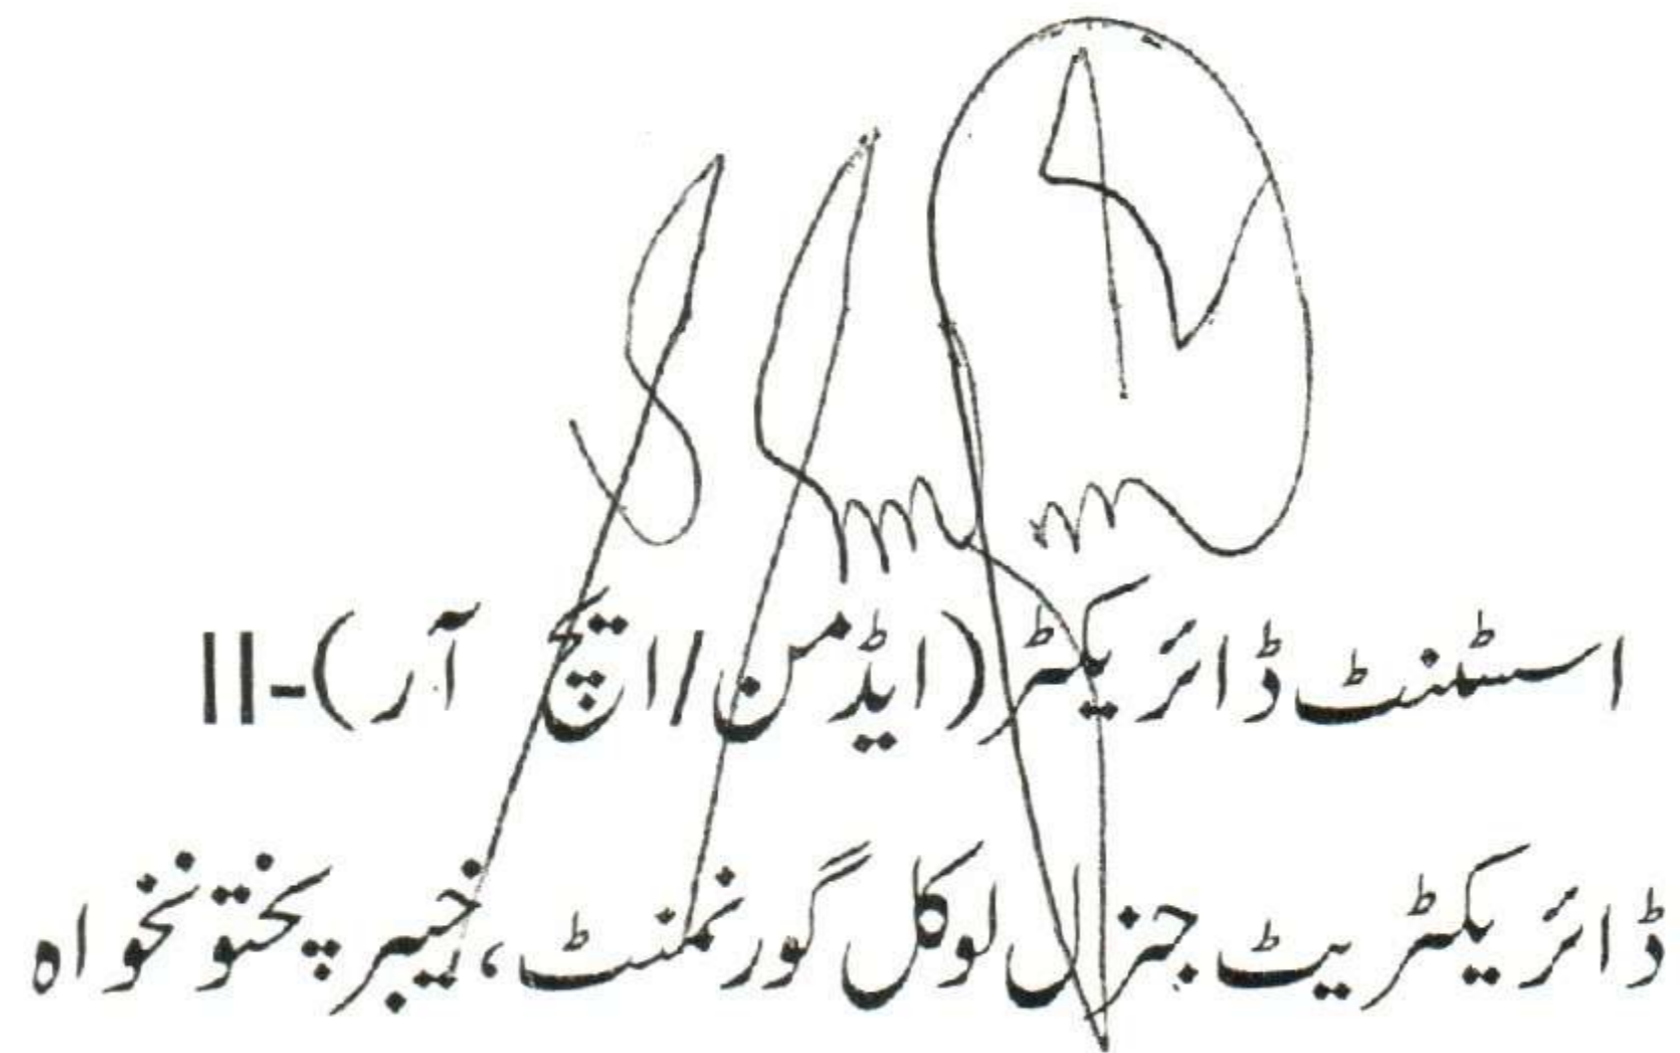 اسسٹنٹ ڈائریکٹر (ایڈمن/ایچ آر)-II
ڈائریکٹریٹ جنرل لوکل گورنمنٹ، خیبر پختونخواہ